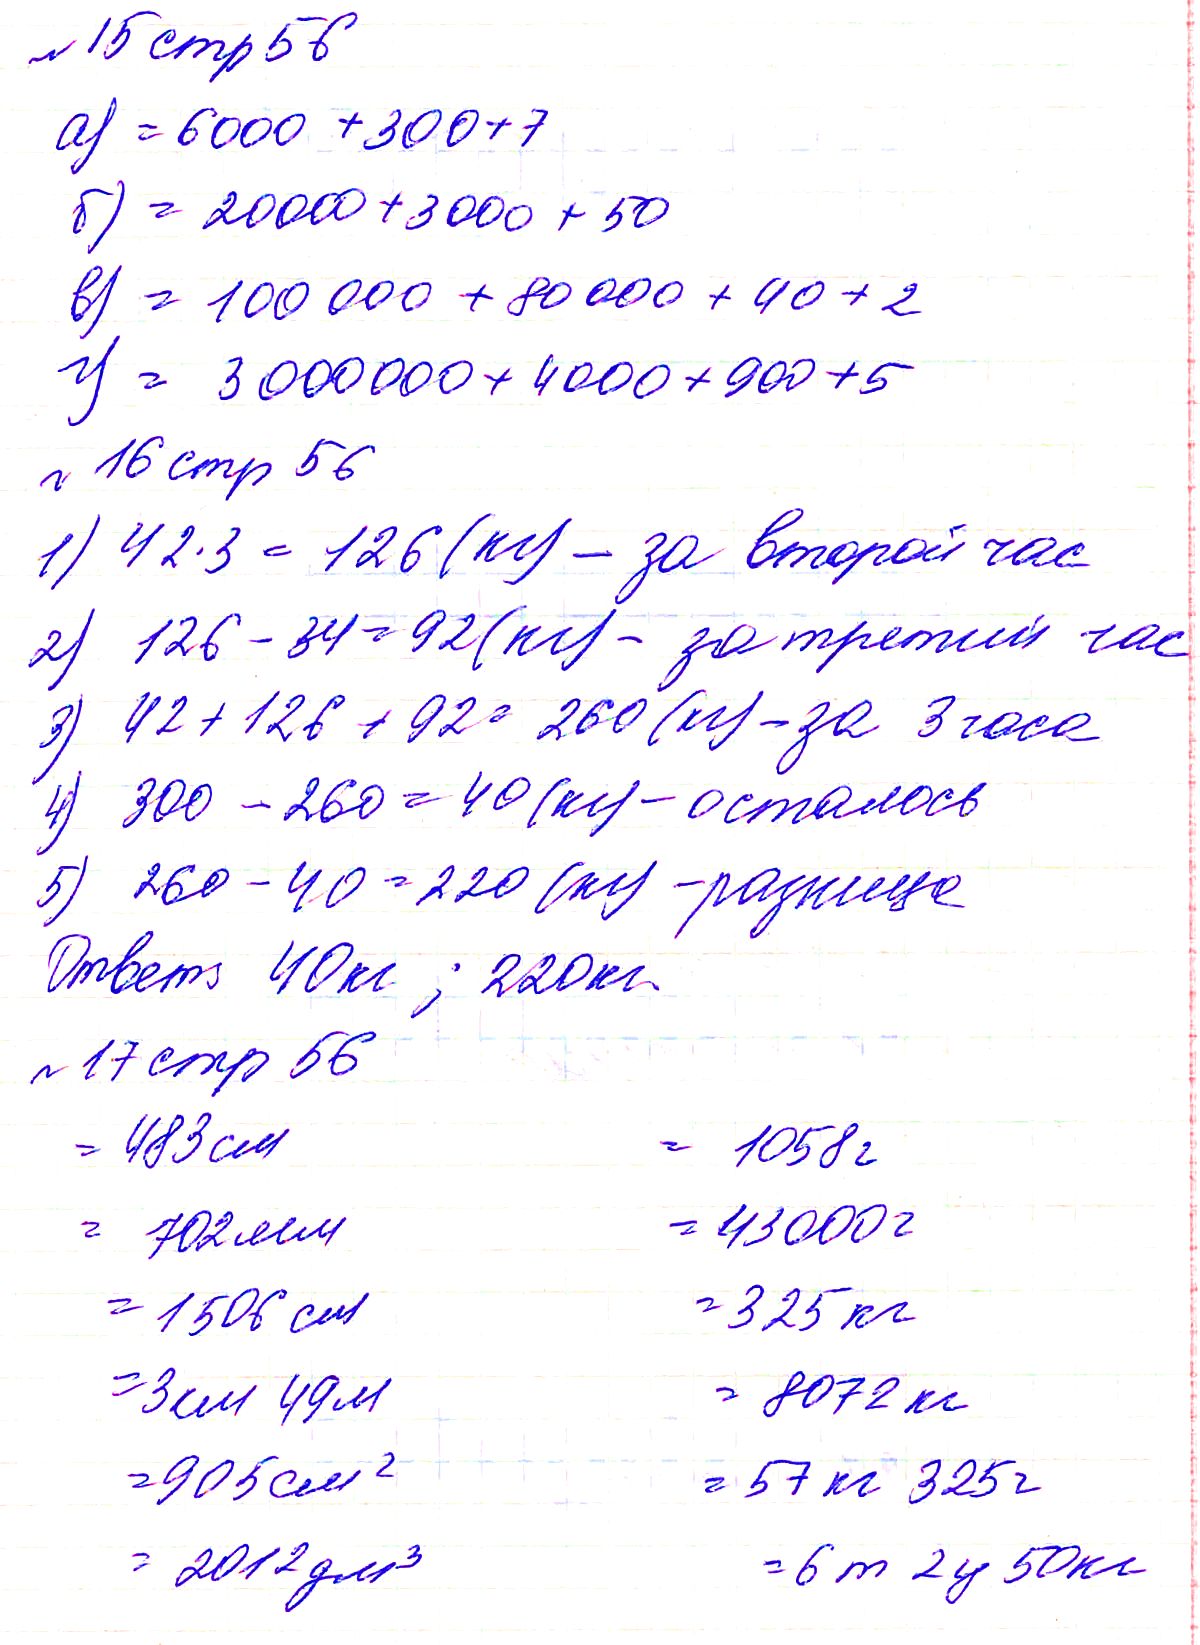 №15 стр 56
а) = 6000 + 300 + 7
б) = 20000 + 3000 + 50
в) = 100 000 + 80000 + 40 + 2
г) = 3000000 + 4000 + 900 + 5
№16 стр 56
1) 42·3 = 126 (кг) – за второй час
2) 126 – 34 = 92 (кг) – за третий час
3) 42 + 126 + 92 = 260 (кг) – за 3 часа
4) 300 – 260 = 40 (кг) – осталось
5) 260 – 40 = 220 (кг) – разница
Ответ: 40кг ; 220кг.
№17 стр 56
= 483 см = 1058 г
= 702 мм = 43000 г
= 1506 см = 325 кг
= 3км 49м = 8072 кг
= 905 см² = 57 кг 325 г
= 2012 дм³ = 6 т 2ц 50кг